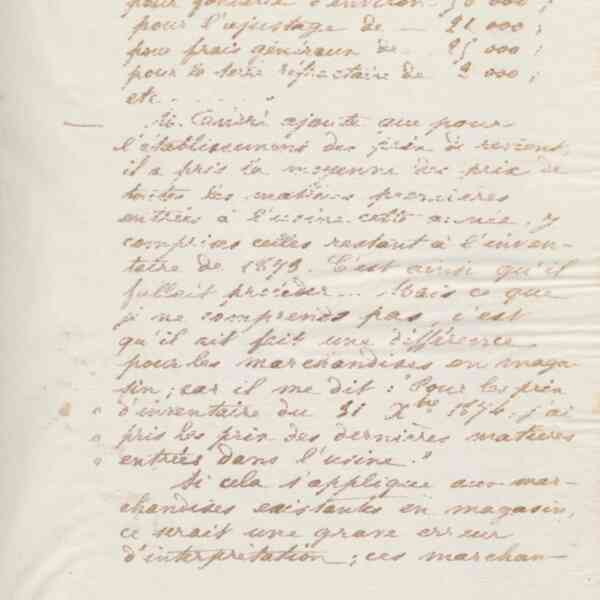 pour fonderie d'environ 50 000;
pour l'ajustage de — 21 000;
pour frais généraux de 25 000;
pour la terre réfractaire de 2 000;
etc. . . . . . "
— M. ajoute que pour
l'établissement des prix de revient,
il a pris la moyenne des prix de
toutes les matières premières
entrées à l'usine cette année, y
comprises celles restant à l'inven-
taire de 1873. C'est ainsi qu'il
fallait procéder... Mais ce que
je ne comprends pas, c'est
qu'il ait fait une différence
pour les marchandises en maga-
sin; car il me dit: "Pour les prix
" d'inventaire du 31 Xbre 1874, j'ai
" pris les prix des dernières matières
" entrées dans l'usine."
Si cela s'applique aux mar-
chandises existantes en magasin,
ce serait une grave erreur
d'interprétation; ces marchan-